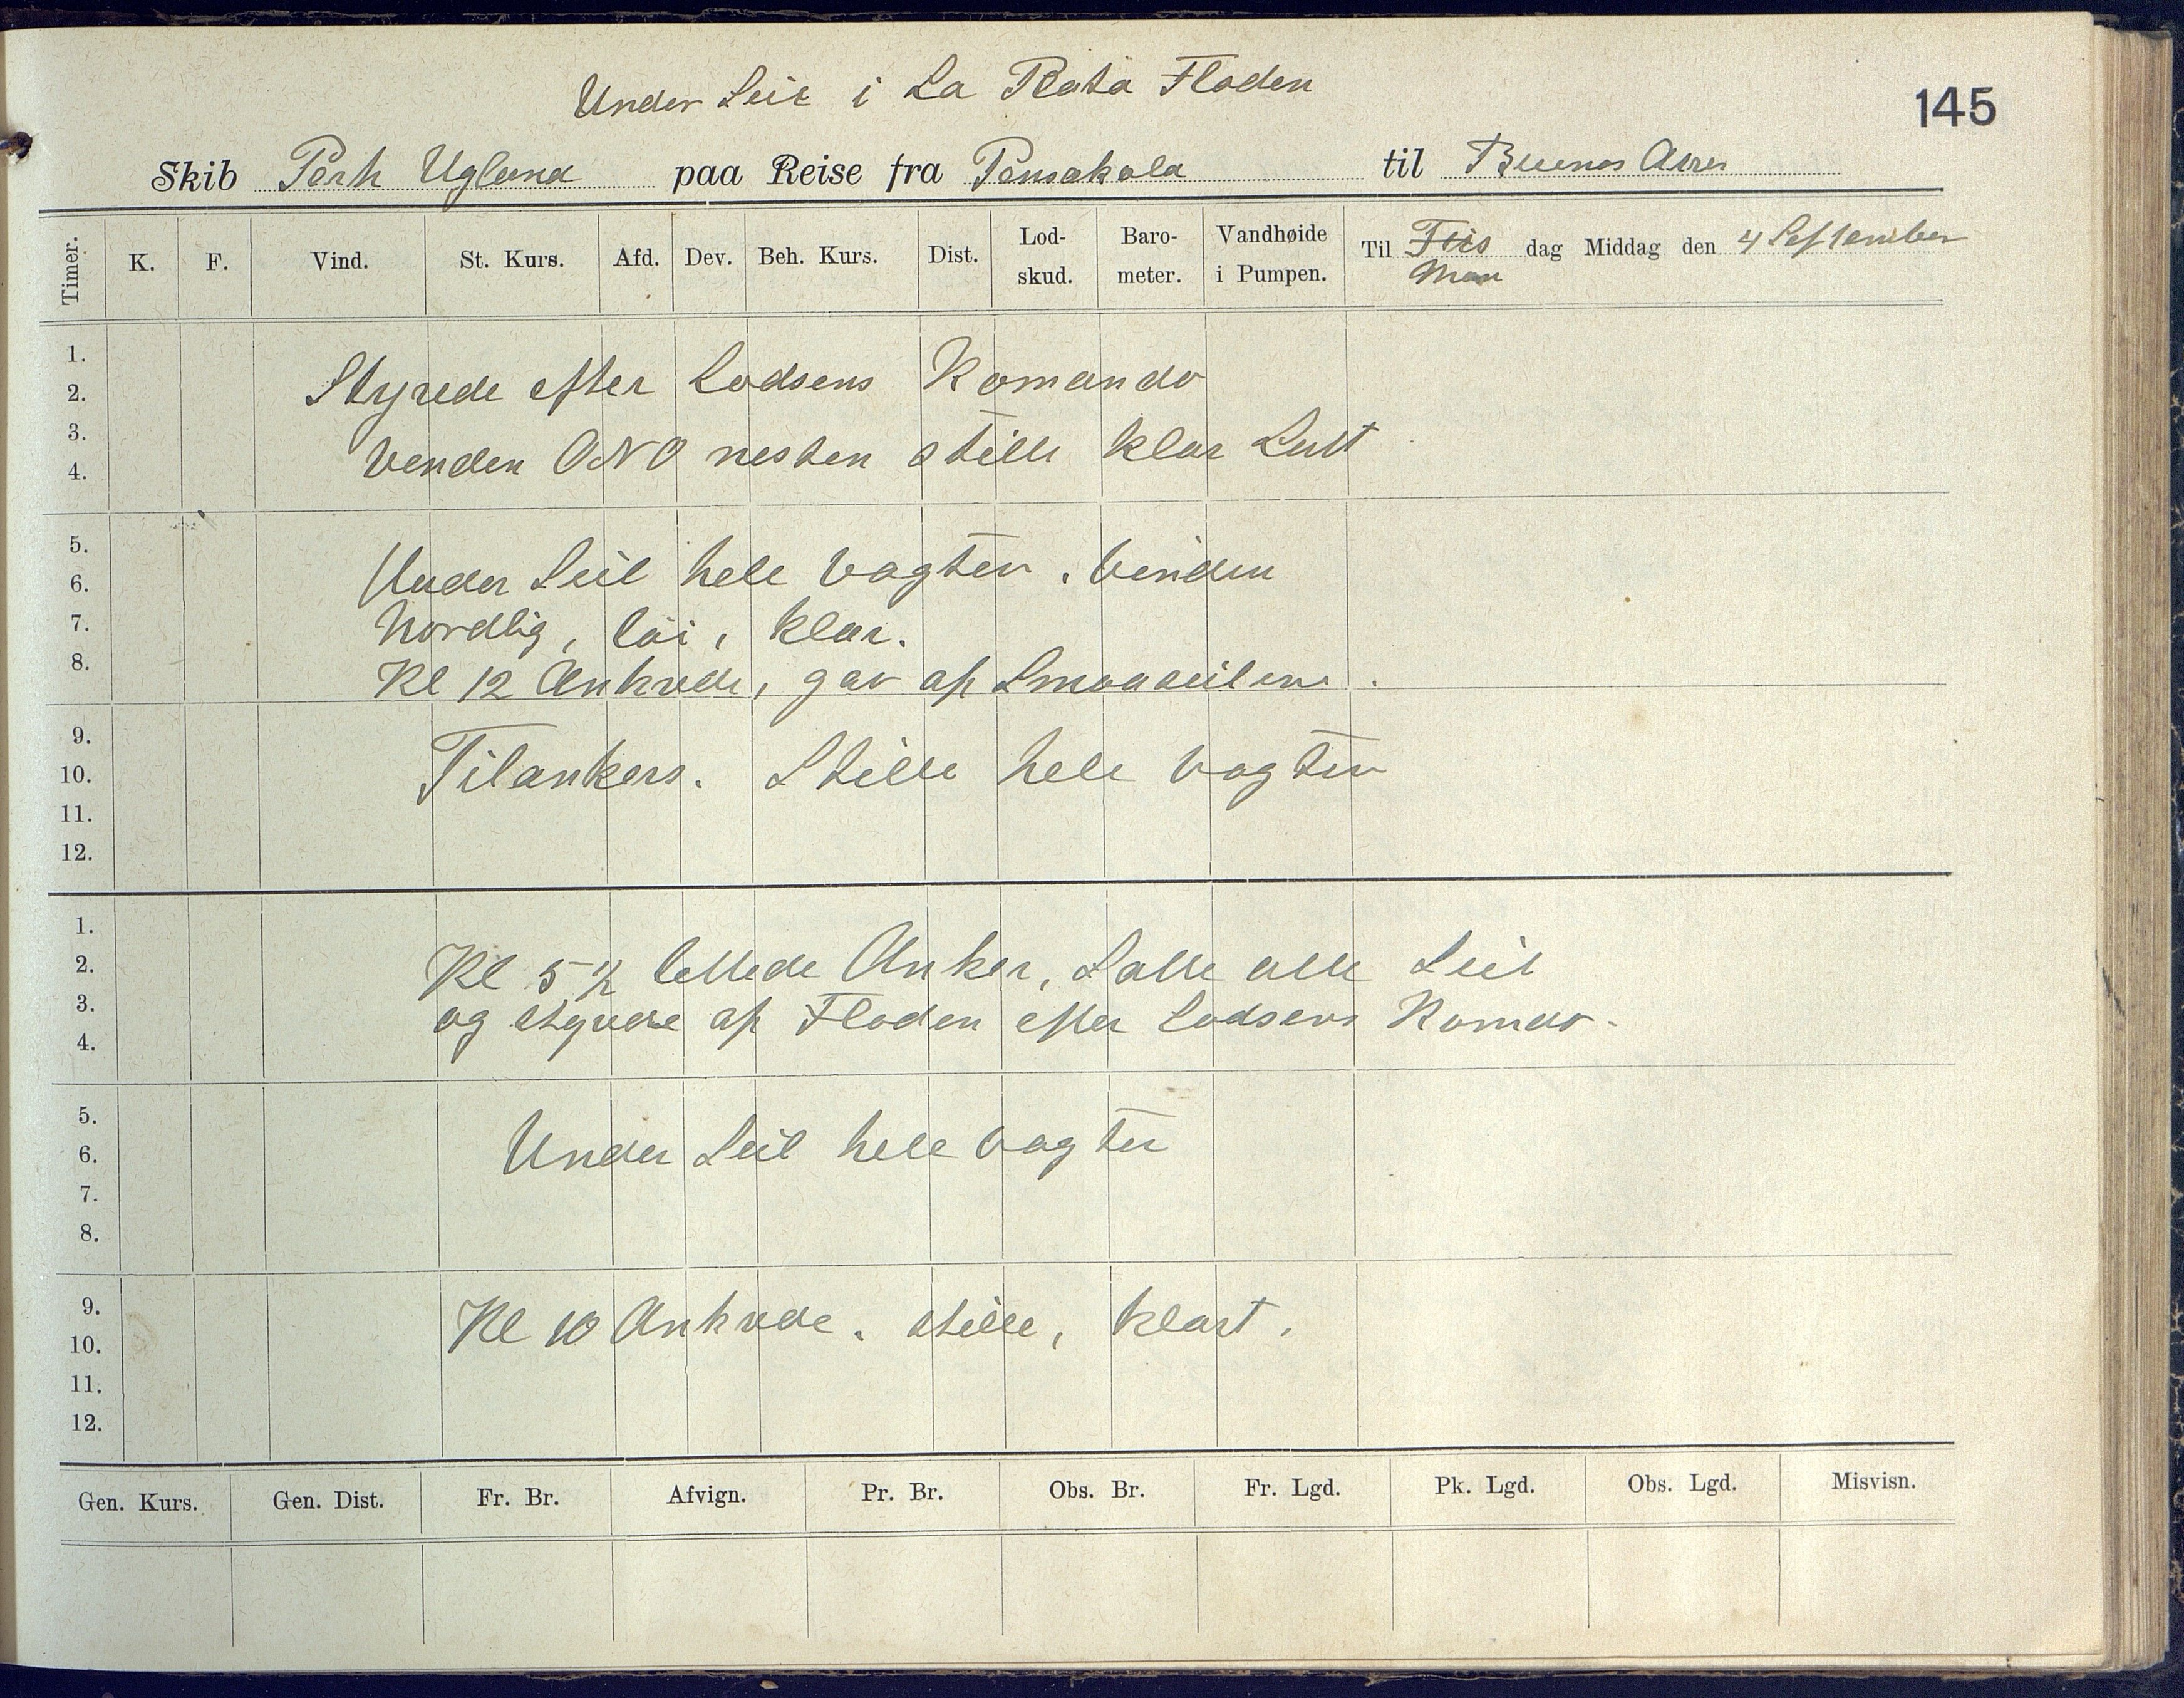 Under Seil i La Plata Floden
145
Skib Perh Ugland paa Reise fra Pensakola til Buenos Aires
Timer. K. F. Vind. St. Kurs. Afd. Dev. Beh. Kurs. Dist. Lod-skud. Baro-meter. Vandhøide i Pumpen. Til Tirs dag Middag den 4 September
Man
1.
2. Styrede efter Lodsens Komando
3.
4. Vinden ONO nesten stille klar Luft
5.
6. Under Seil hele Vagten. Vinden
7. Nordlig, löi, klar.
8. Kl 12 Ankrede, gav op Smaaseilene.
9.
10. Tilankers. Stille hele Vagten
11.
12.
1.
2. Kl 5 ½ lettede Anker, Satte alle Seil
3. og styrede op Floden efter Lodsens Komdo.
4.
5.
6. Under Seil hele Vagten
7.
8.
9.
10. Kl 10 Ankrede. stille, klart.
11.
12.
Gen. Kurs. Gen. Dist. Fr. Br. Afvign. Pr. Br. Obs. Br. Fr. Lgd. Pk. Lgd. Obs. Lgd. Misvisn.